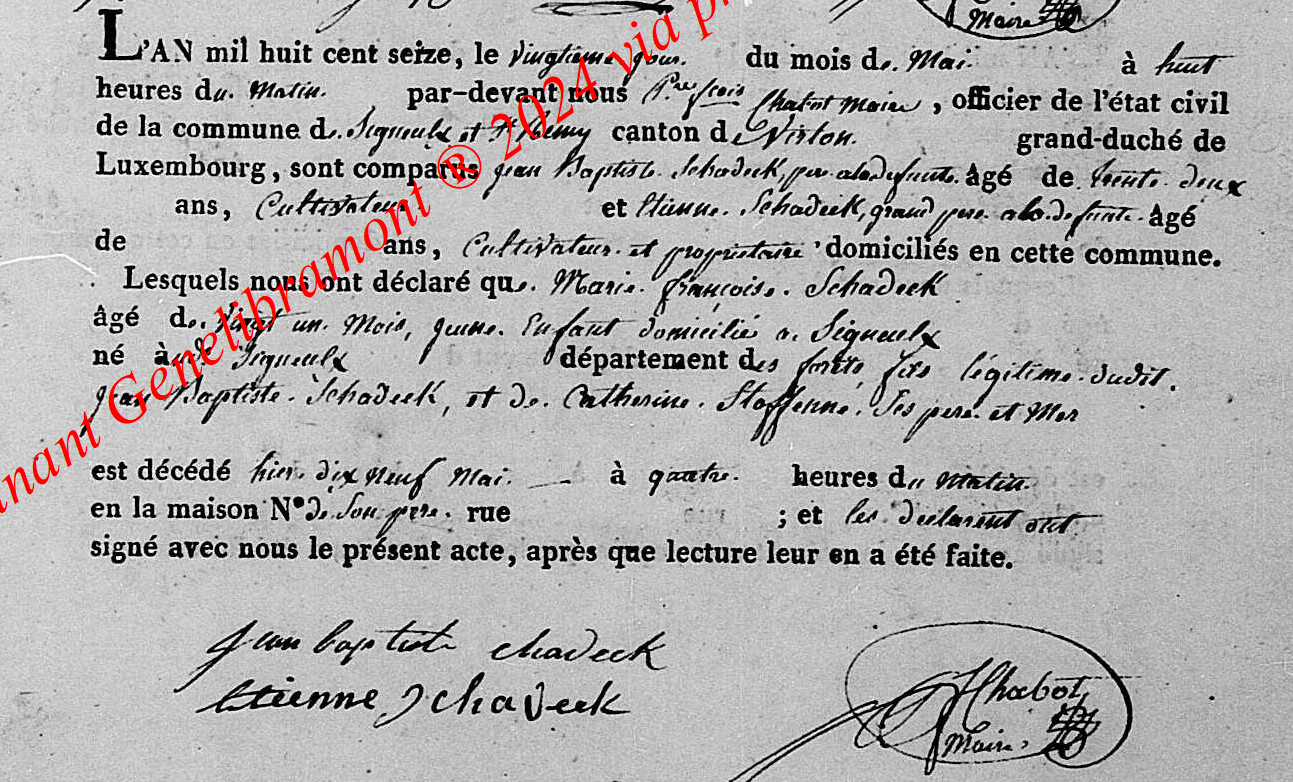 Maire
L'AN mil huit cent seize, le vingtieme jour. du mois de Mai. à huit
heures du Matin. par-devant nous Chabot Maire, officier de l'état civil
de la commune de Signeulx et St Remy canton de Virton. grand-duché de
Luxembourg, sont comparus jean Baptiste Schadeck, pere a la defunte. âgé de trente deux
ans, Cultivateur et Etienne Schadeck, grand pere a la defunte. âgé
de ans, Cultivateur et proprietaire domiciliés en cette commune.
Lesquels nous ont déclaré que Marie françoise Schadeck
âgé de vingt un Mois, jeune Enfant domicilié a Signeulx
né à Signeulx département des forêts, fils légitime dudit.
jean Baptiste Schadeck, et de Catherine Ses pere et Mer
est décédé hier dix neuf Mai. à quatre heures du Matin.
en la maison N° de Son pere. rue ; et les declarent ont
signé avec nous le présent acte, après que lecture leur en a été faite.
jean baptiste chadeck
Etienne Schadeck
Chabot
Maire
nant Genelibramont ® 2024 via p